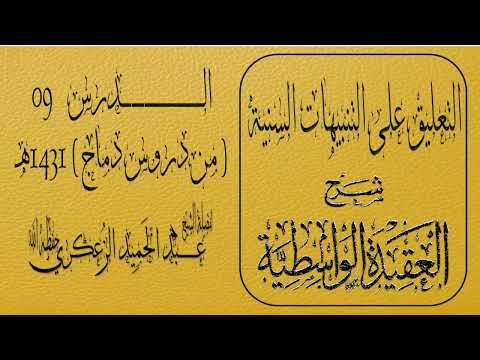 التعليق على التنبيهات السنية
شرح
العقيدة الواسطية
الــدرس 09
( من دروس دماج ) 1431هـ
لفضيلة الشيخ
عبد الحميد الزعكري حفظه الله